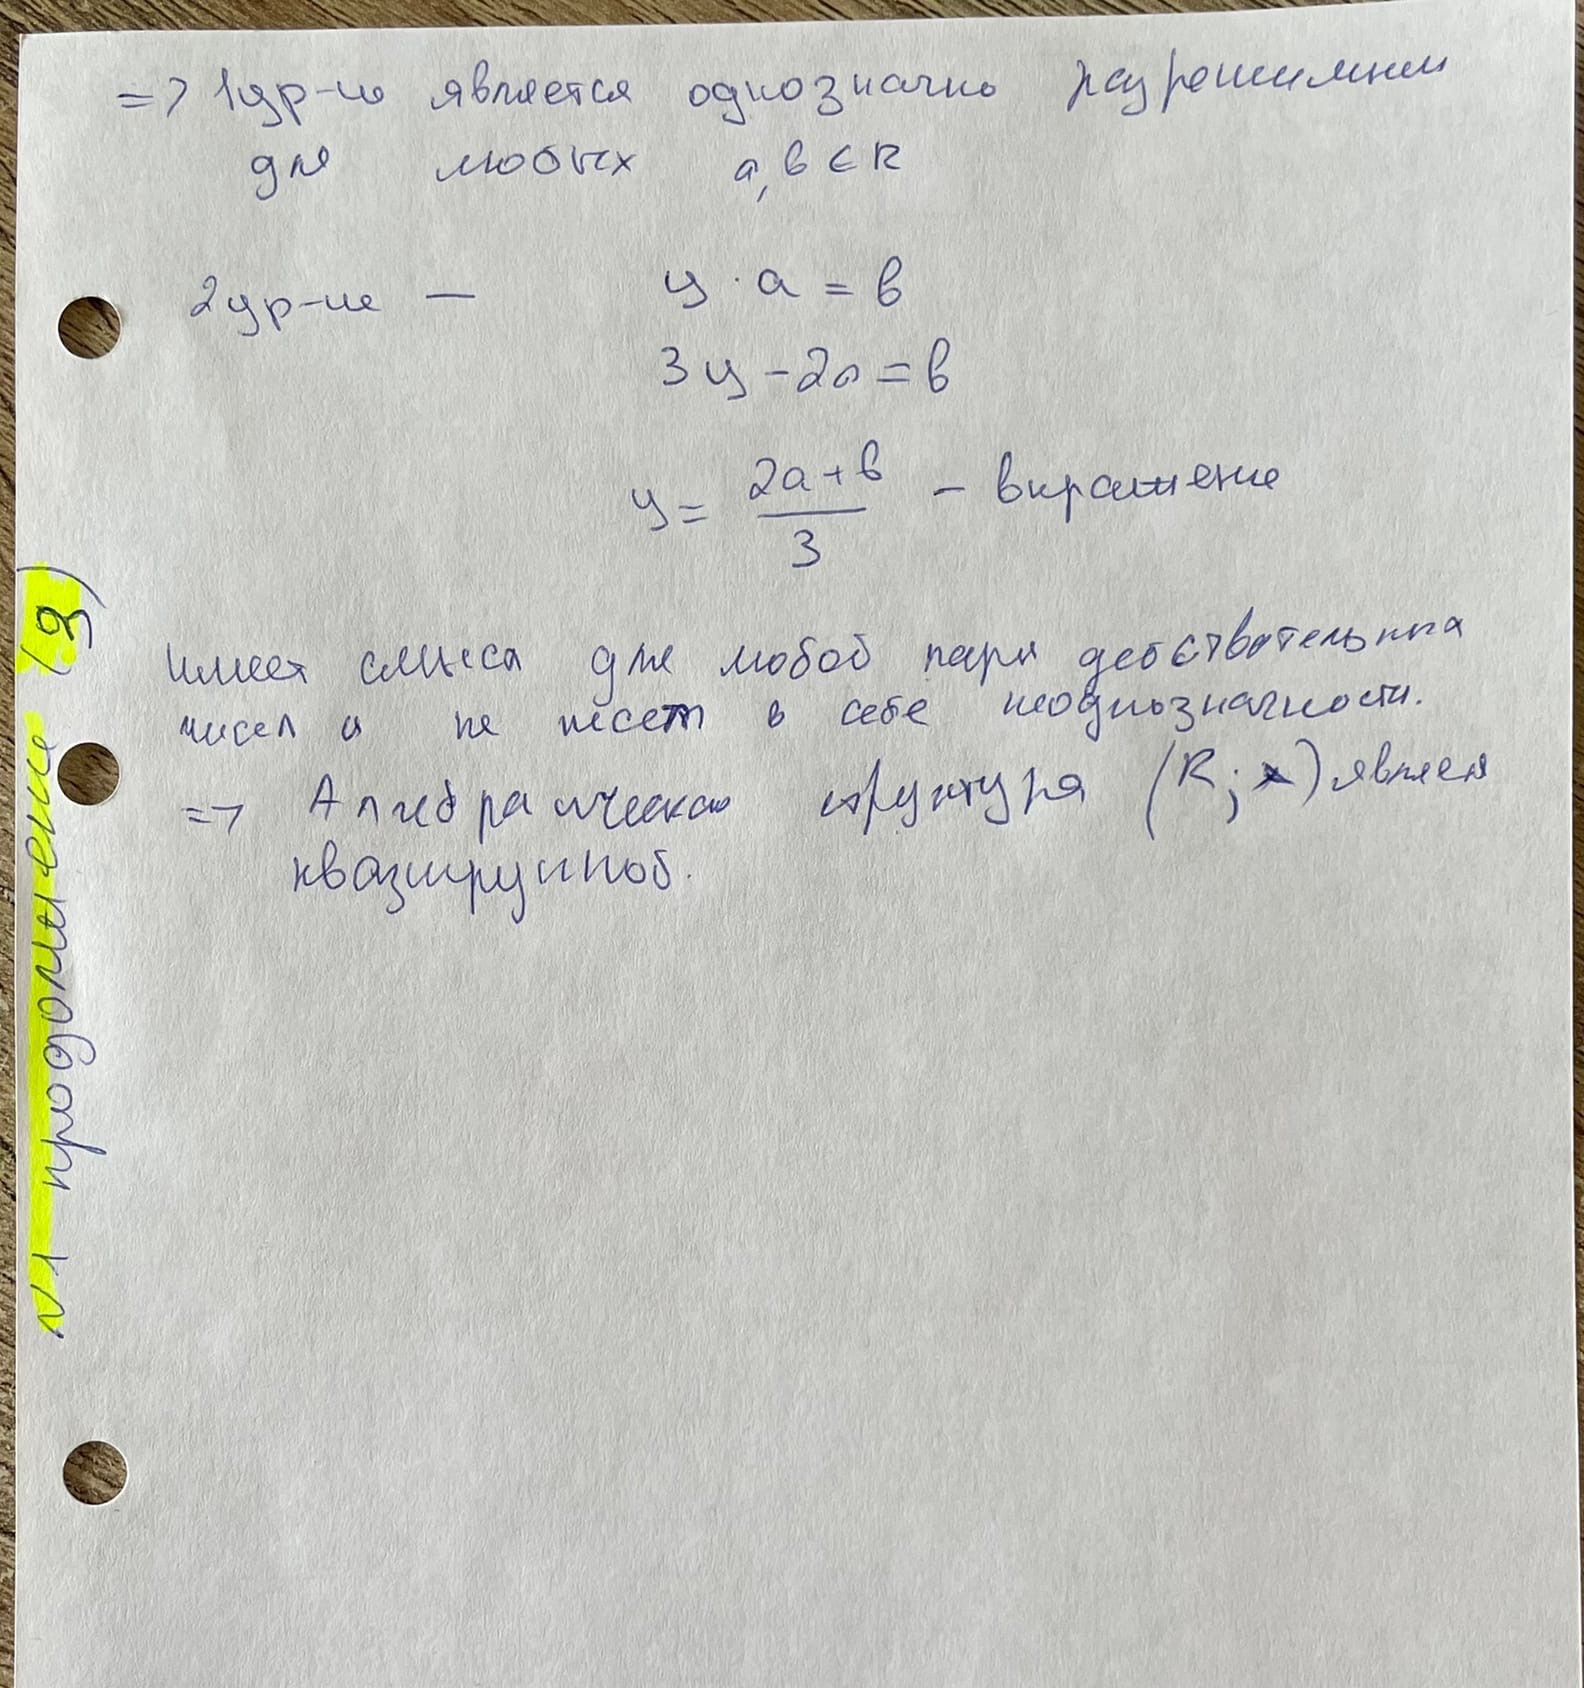 => 1 ур-ие является однозначно разрешимым
для любых a, b ∈ R
2 ур-ие — y · a = b
3y - 2a = b
y = (2a + b)/3 - выражение
имеет смысл для любой пары действительных
чисел и не несет в себе неоднозначности.
=> Алгебраическая структура (R; *) является
квазигруппой.
N1 продолжение (3)